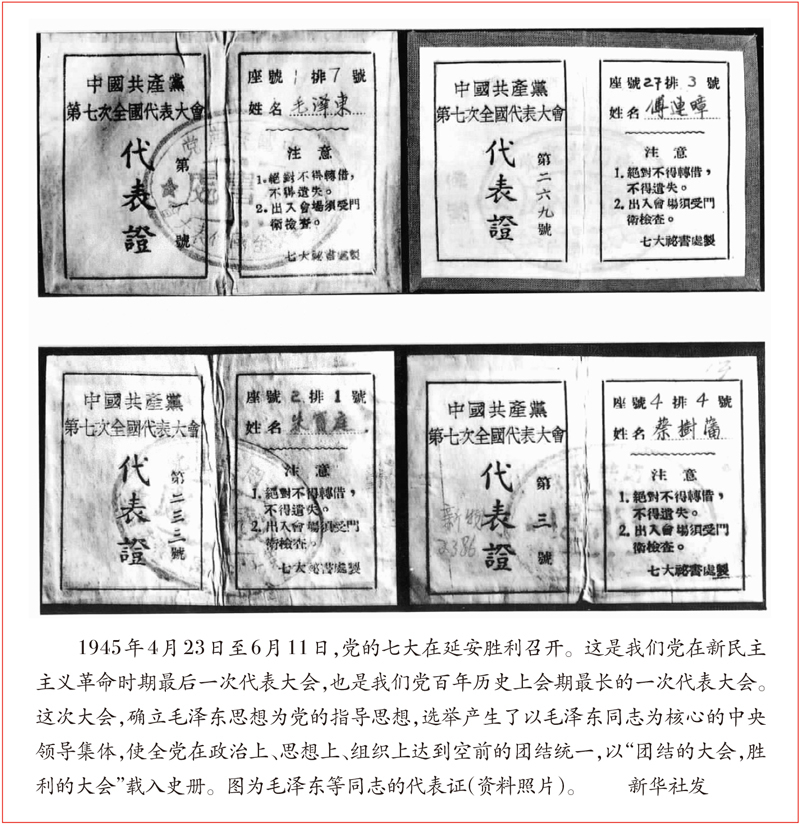 中國共產黨
第七次全國代表大會
代表證
第一號
座號1排7號
姓名 毛澤東
注意
1.絕對不得轉借，
不得遺失。
2.出入會場須受門
衛檢查。
七大祕書處製
中國共產黨
第七次全國代表大會
代表證
第二六九號
座號27排3號
姓名 傅連暲
注意
1.絕對不得轉借，
不得遺失。
2.出入會場須受門
衛檢查。
七大祕書處製
中國共產黨
第七次全國代表大會
代表證
第二三三號
座號2排1號
姓名 朱寶庭
注意
1.絕對不得轉借，
不得遺失。
2.出入會場須受門
衛檢查。
七大祕書處製
中國共產黨
第七次全國代表大會
代表證
第三號
3386
座號4排4號
姓名 蔡樹藩
注意
1.絕對不得轉借，
不得遺失。
2.出入會場須受門
衛檢查。
七大祕書處製
1945年4月23日至6月11日,党的七大在延安胜利召开。这是我们党在新民主
主义革命时期最后一次代表大会,也是我们党百年历史上会期最长的一次代表大会。
这次大会,确立毛泽东思想为党的指导思想,选举产生了以毛泽东同志为核心的中央
领导集体,使全党在政治上、思想上、组织上达到空前的团结统一,以“团结的大会,胜
利的大会”载入史册。图为毛泽东等同志的代表证(资料照片)。 新华社发